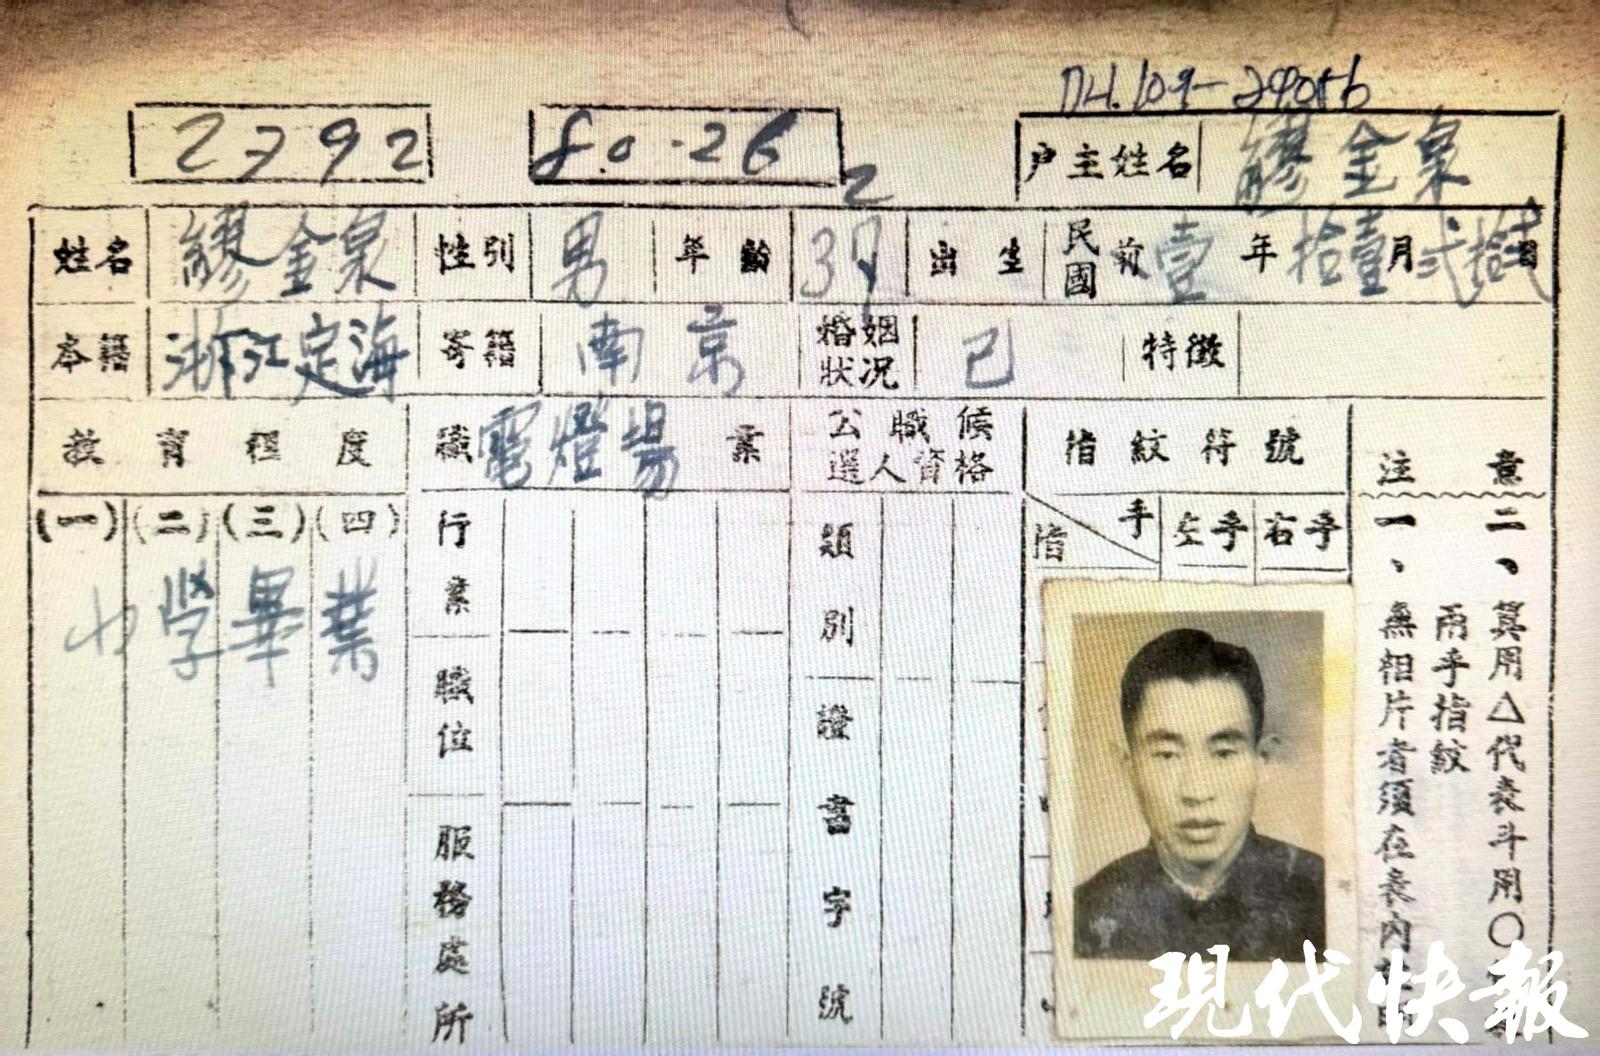 2792
戶主姓名 繆金泉
姓名 繆金泉 性別 男 年齡 37 出生 民國前壹年拾壹月貳拾貳日
本籍 浙江定海 寄籍 南京 婚姻狀况 已 特徵
教育程度 職業 電燈場 公職候選人資格 指紋符號
(一) (二) (三) (四)
中學畢業
行業
職位
服務處所
類別
證書字號
指 手 左手 右手
注意
一、無相片者須在表內
兩手指紋
二、箕用△代表斗用○
現代快報